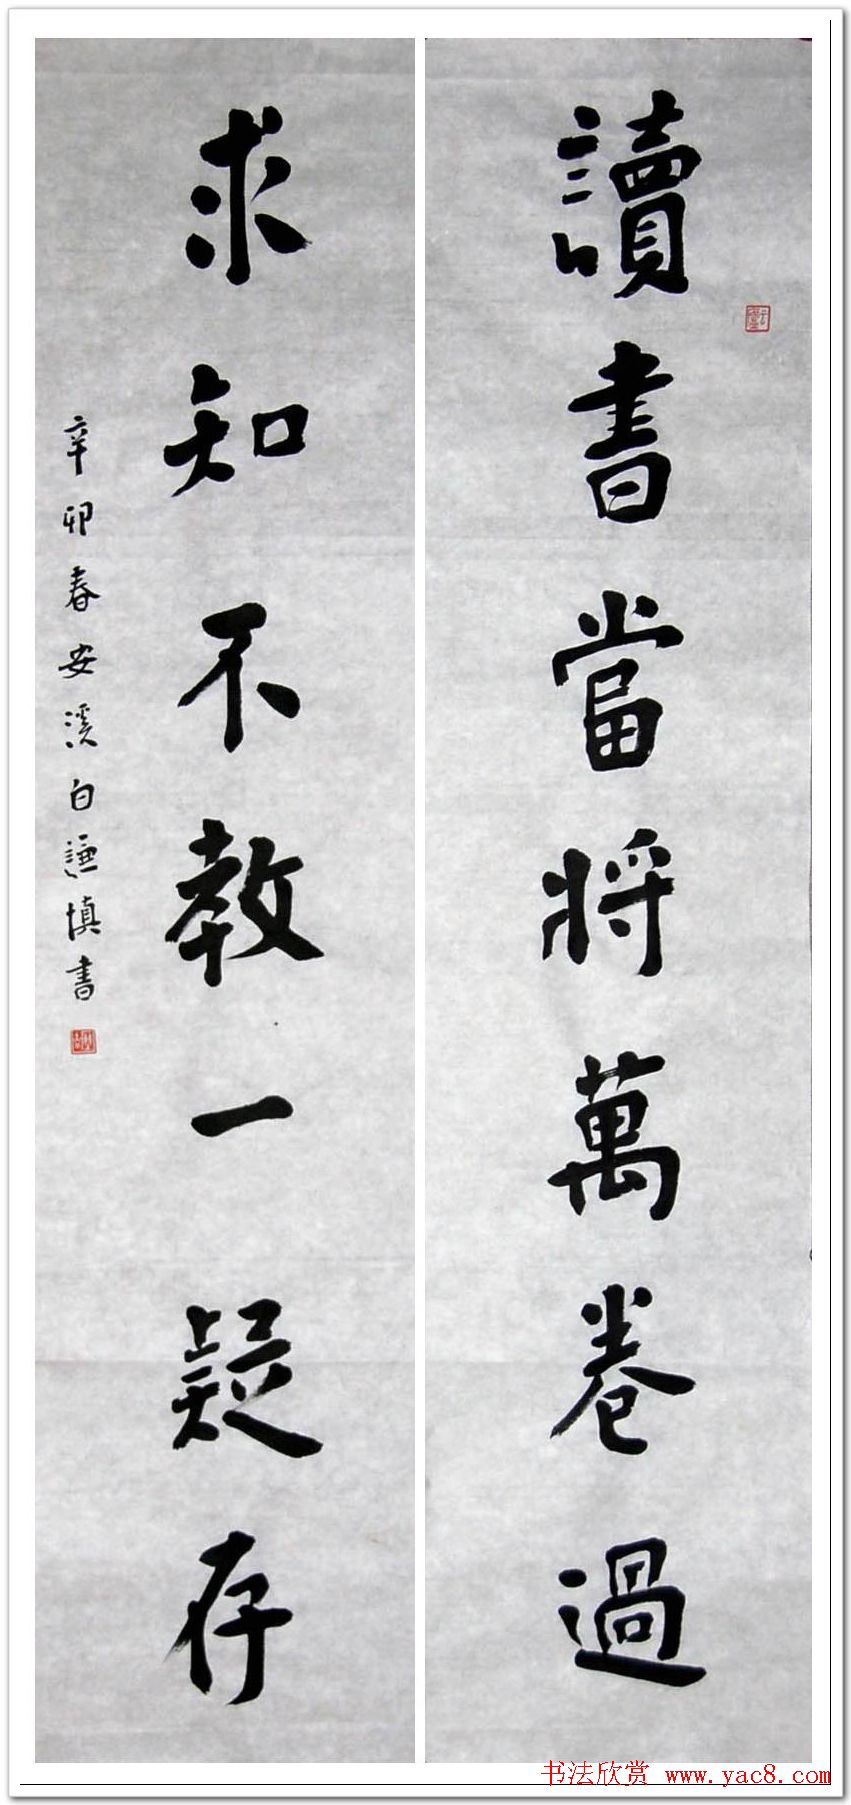 讀書當將萬卷過
求知不教一疑存
辛卯春安溪白謙慎書
书法欣赏 www.yac8.com